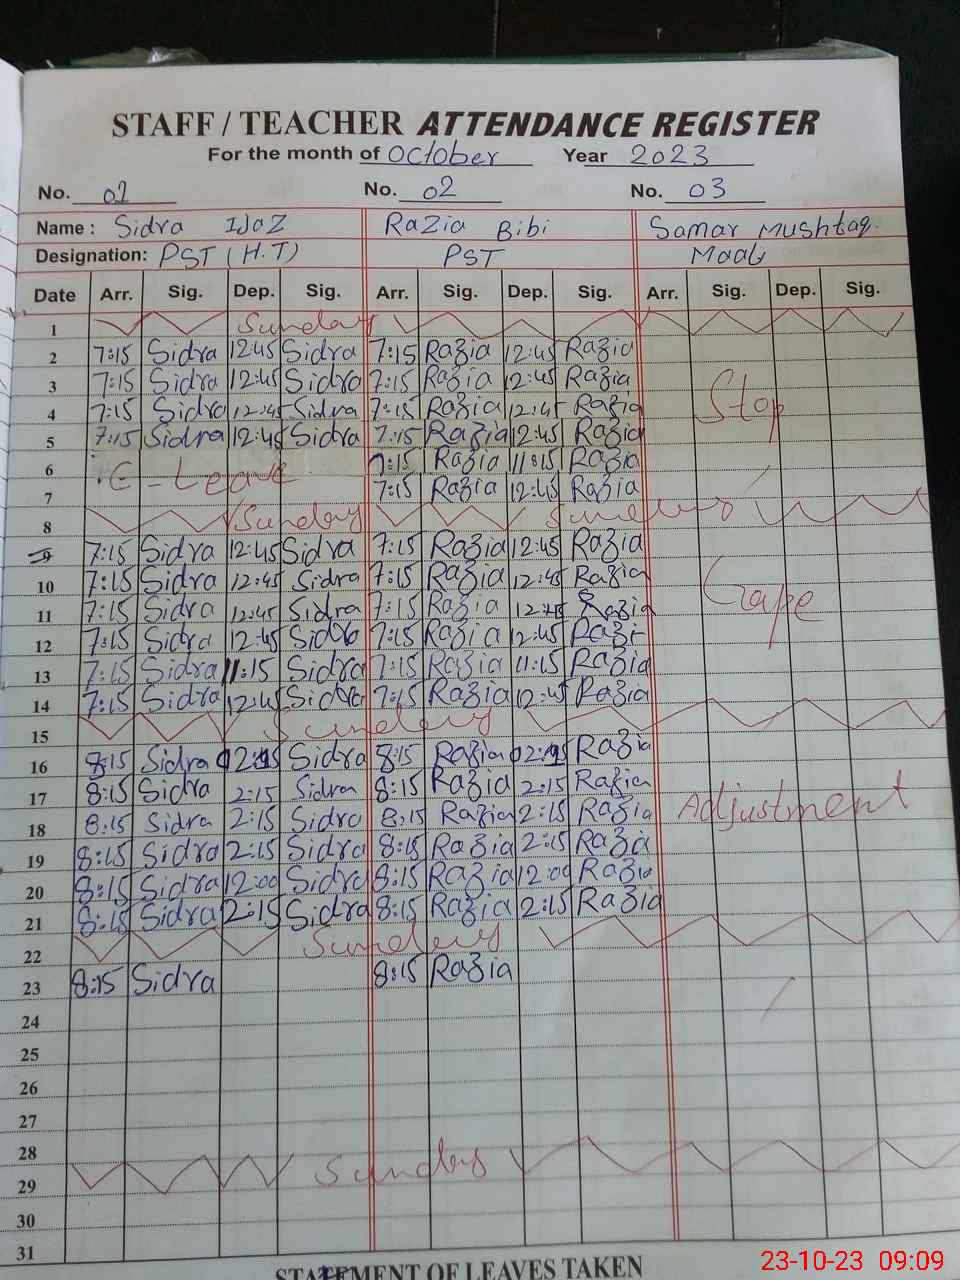 STAFF / TEACHER ATTENDANCE REGISTER
For the month of October Year 2023
No. 01 No. 02 No. 03
Name : Sidra IJaZ RaZia Bibi Samar Mushtaq.
Designation: PST (H.T) PST
Date Arr. Sig. Dep. Sig. Arr. Sig. Dep. Sig. Arr. Sig. Dep. Sig.
1 Sunday
2 7:15 Sidra 12:45 Sidra 7:15 Razia 12:45 Razia
3 7:15 Sidra 12:45 Sidra 7:15 Razia 12:45 Razia Stop
4 7:15 Sidra 12:45 Sidra 7:15 Razia 12:45 Razia
5 7:15 Sidra 12:45 Sidra 7:15 Razia 12:45 Razia
6 E - Leave 7:15 Razia 11:15 Razia
7 7:15 Razia 12:45 Razia
8 Sunday Sunday
9 7:15 Sidra 12:45 Sidra 7:15 Razia 12:45 Razia
10 7:15 Sidra 12:45 Sidra 7:15 Razia 12:45 Razia Gape
11 7:15 Sidra 12:45 Sidra 7:15 Razia 12:45 Razia
12 7:15 Sidra 12:45 Sidra 7:15 Razia 12:45 Razi
13 7:15 Sidra 11:15 Sidra 7:15 Razia 11:15 Razia
14 7:15 Sidra 12:45 Sidra 7:15 Razia 12:45 Razia
15 Sunday
16 8:15 Sidra 02:15 Sidra 8:15 Razia 02:15 Razia
17 8:15 Sidra 2:15 Sidra 8:15 Razia 2:15 Razia Adjustment
18 8:15 Sidra 2:15 Sidra 8:15 Razia 2:15 Razia
19 8:15 Sidra 2:15 Sidra 8:15 Razia 2:15 Razia
20 8:15 Sidra 12:00 Sidra 8:15 Razia 12:00 Razia
21 8:15 Sidra 2:15 Sidra 8:15 Razia 2:15 Razia
22 Sunday
23 8:15 Sidra 8:15 Razia
24
25
26
27
28
29 Sunday
30
31
STATEMENT OF LEAVES TAKEN
23-10-23 09:09